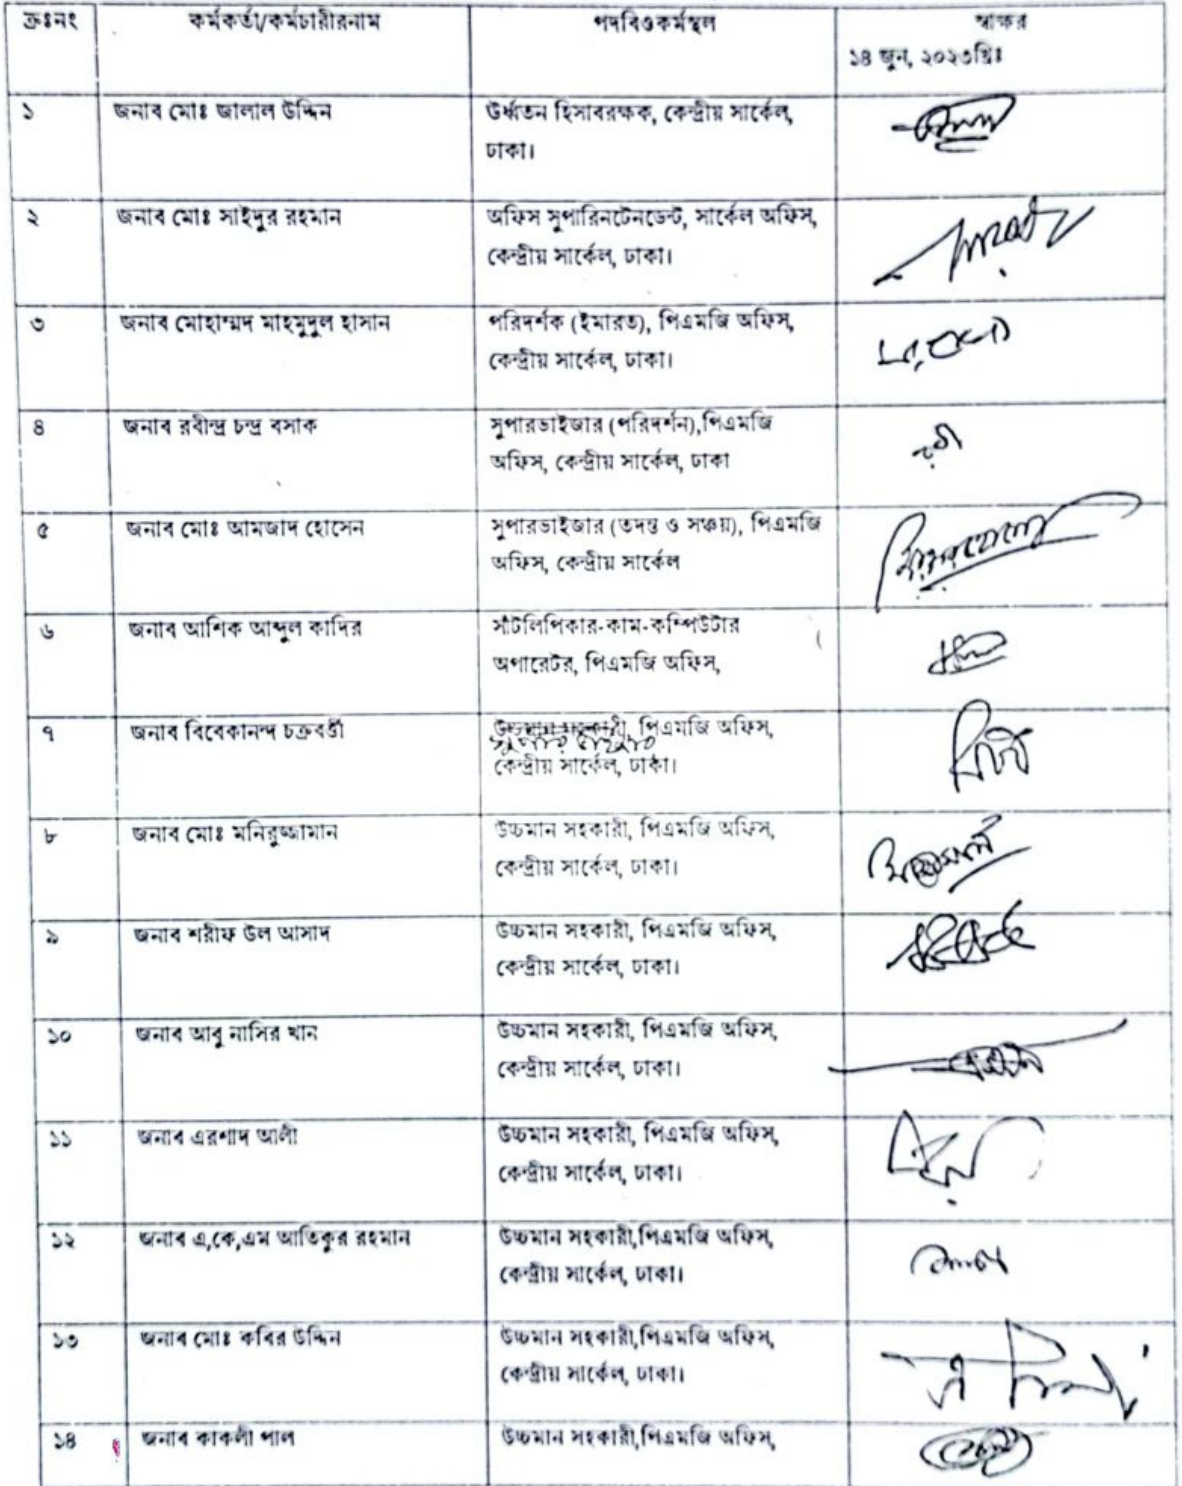 ক্রঃনং কর্মকর্তা/কর্মচারীরনাম পদবিওকর্মস্থল স্বাক্ষর
১৪ জুন, ২০২৩খ্রিঃ
১ জনাব মোঃ জালাল উদ্দিন উর্ধ্বতন হিসাবরক্ষক, কেন্দ্রীয় সার্কেল,
ঢাকা।
২ জনাব মোঃ সাইদুর রহমান অফিস সুপারিনটেনডেন্ট, সার্কেল অফিস,
কেন্দ্রীয় সার্কেল, ঢাকা।
৩ জনাব মোহাম্মদ মাহমুদুল হাসান পরিদর্শক (ইমারত), পিএমজি অফিস,
কেন্দ্রীয় সার্কেল, ঢাকা।
৪ জনাব রবীন্দ্র চন্দ্র বসাক সুপারভাইজার (পরিদর্শন),পিএমজি
অফিস, কেন্দ্রীয় সার্কেল, ঢাকা
৫ জনাব মোঃ আমজাদ হোসেন সুপারভাইজার (তদন্ত ও সঞ্চয়), পিএমজি
অফিস, কেন্দ্রীয় সার্কেল
৬ জনাব আশিক আব্দুল কাদির সাঁটলিপিকার-কাম-কম্পিউটার
অপারেটর, পিএমজি অফিস,
৭ জনাব বিবেকানন্দ চক্রবর্ত্তী উচ্চমান সহকারী, পিএমজি অফিস,
কেন্দ্রীয় সার্কেল, ঢাকা।
৮ জনাব মোঃ মনিরুজ্জামান উচ্চমান সহকারী, পিএমজি অফিস,
কেন্দ্রীয় সার্কেল, ঢাকা।
৯ জনাব শরীফ উল আসাদ উচ্চমান সহকারী, পিএমজি অফিস,
কেন্দ্রীয় সার্কেল, ঢাকা।
১০ জনাব আবু নাসির খান উচ্চমান সহকারী, পিএমজি অফিস,
কেন্দ্রীয় সার্কেল, ঢাকা।
১১ জনাব এরশাদ আলী উচ্চমান সহকারী, পিএমজি অফিস,
কেন্দ্রীয় সার্কেল, ঢাকা।
১২ জনাব এ,কে,এম আতিকুর রহমান উচ্চমান সহকারী,পিএমজি অফিস,
কেন্দ্রীয় সার্কেল, ঢাকা।
১৩ জনাব মোঃ কবির উদ্দিন উচ্চমান সহকারী,পিএমজি অফিস,
কেন্দ্রীয় সার্কেল, ঢাকা।
১৪ জনাব কাকলী পাল উচ্চমান সহকারী,পিএমজি অফিস,